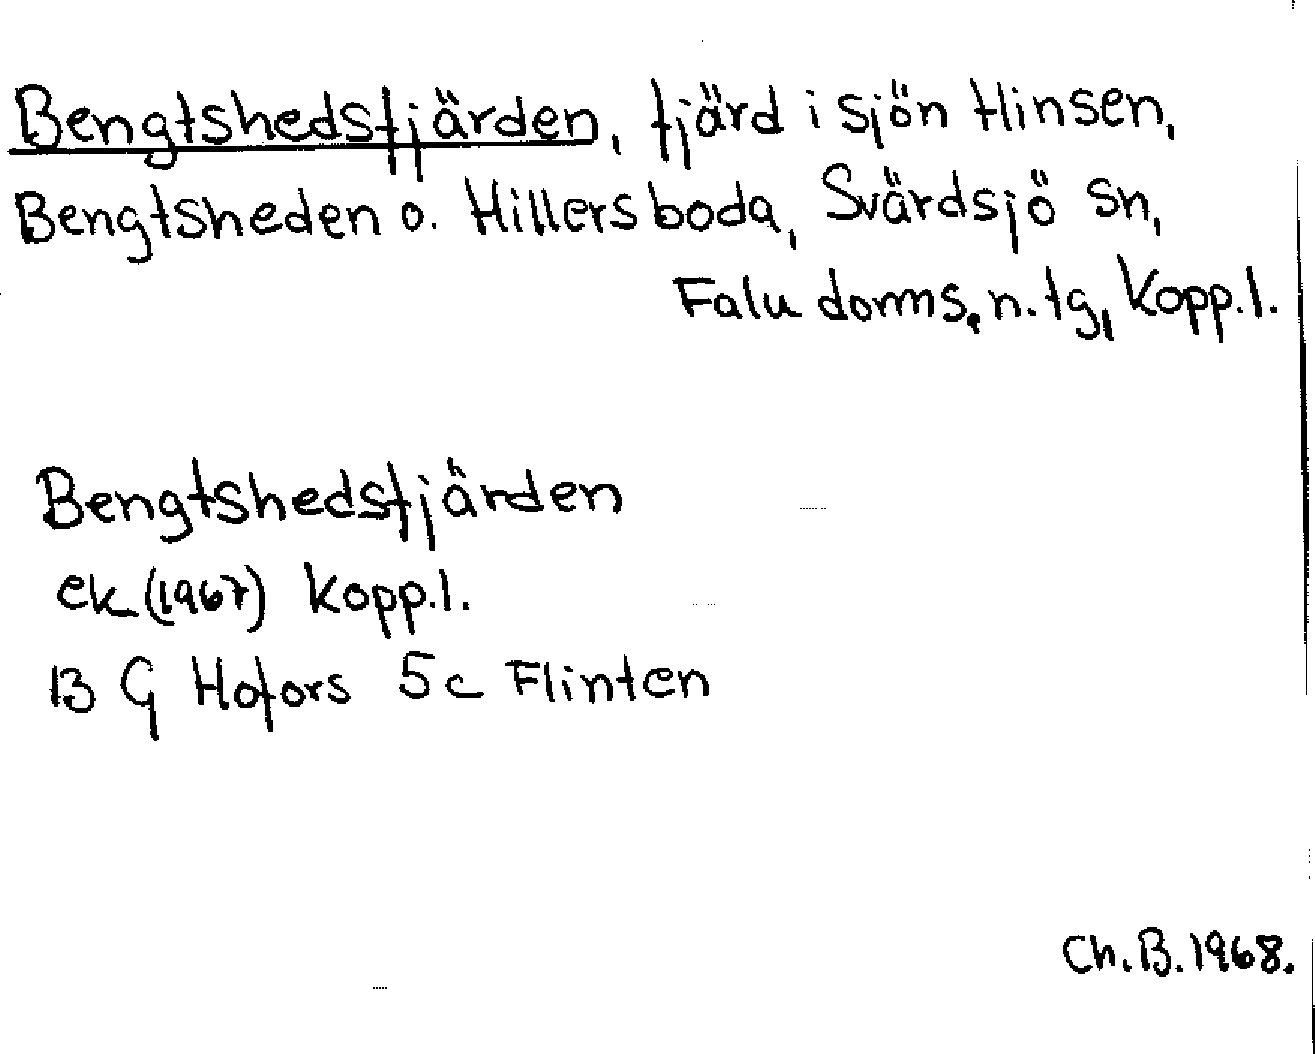 Bengtshedsfjärden, fjärd i sjön Hinsen,
Bengtsheden o. Hillersboda, Svärdsjö sn,
Falu doms. n. tg, Kopp.l.
Bengtshedsfjärden
ek (1967) Kopp.l.
13 G Hofors 5c Flinten
Ch. B. 1968.